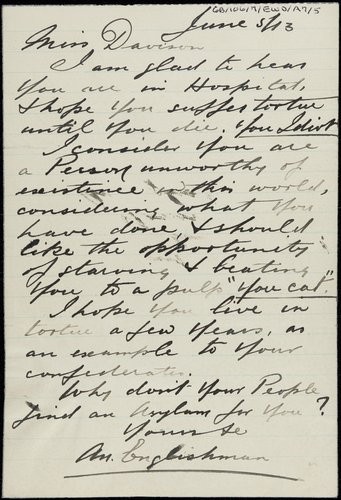 GB/106/7/EWD/A7/5
June 5/13
Miss Davison
I am glad to hear
you are in Hospital,
& hope you suffer torture
until you die. You Idiot
I consider you are
a Person unworthy of
existence in this world,
considering what you
have done, & should
like the opportunity
of starving & beating
you to a pulp "you cat".
I hope you live in
torture a few years, as
an example to your
confederates.
Why don't your People
find an Asylum for you?
Yours &c
An. Englishman